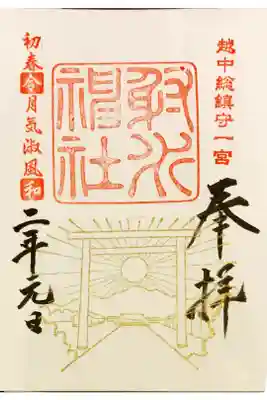 越中総鎮守一宮
奉拝
射水神社
初春令月気淑風和
二年元日